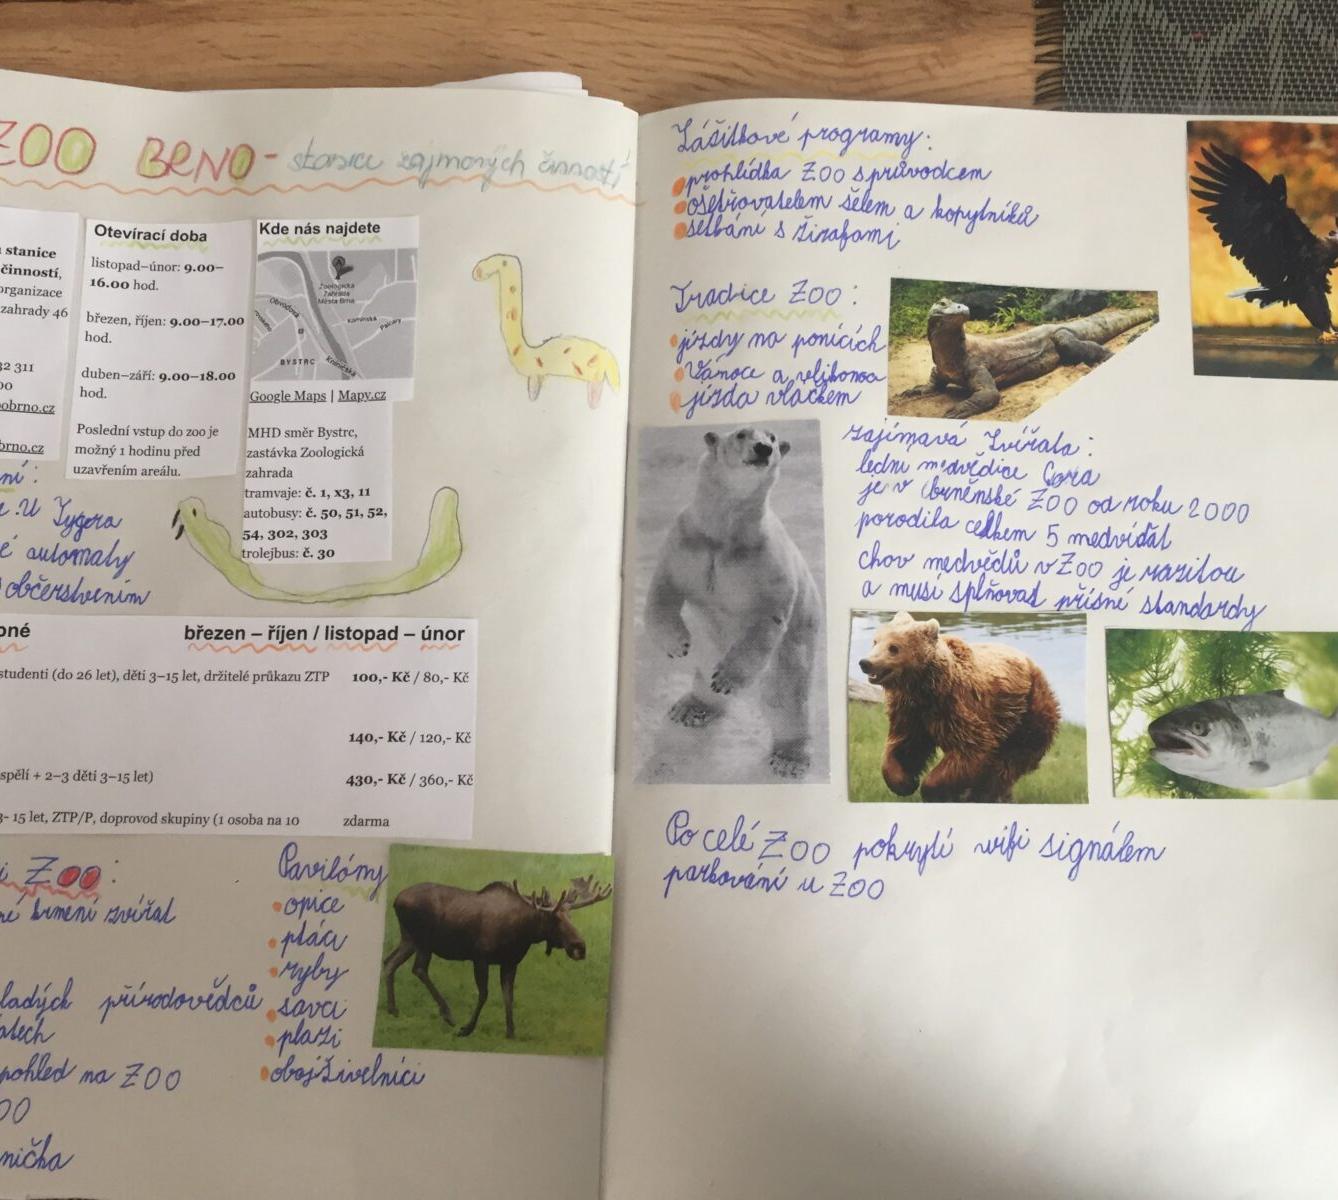 ZOO BRNO - stanice zájmových činností
stanice
činností,
organizace
zahrady 46
32 311
00
obrno.cz
brno.cz
Otevírací doba
listopad–únor: 9.00–
16.00 hod.
březen, říjen: 9.00–17.00
hod.
duben–září: 9.00–18.00
hod.
Poslední vstup do zoo je
možný 1 hodinu před
uzavřením areálu.
Kde nás najdete
Zoologická
Zahrada
Města Brna
Obvodová
Kamínská
Palcary
BYSTRC
Kníničská
Google Maps | Mapy.cz
MHD směr Bystrc,
zastávka Zoologická
zahrada
tramvaje: č. 1, x3, 11
autobusy: č. 50, 51, 52,
54, 302, 303
trolejbus: č. 30
ní:
U Tygra
é automaty
s občerstvením
pné březen – říjen / listopad – únor
studenti (do 26 let), děti 3–15 let, držitelé průkazu ZTP 100,- Kč / 80,- Kč
140,- Kč / 120,- Kč
spělí + 2–3 děti 3–15 let) 430,- Kč / 360,- Kč
3- 15 let, ZTP/P, doprovod skupiny (1 osoba na 10 zdarma
i ZOO:
né krmení zvířat
ladých přírodovědců
atech
pohled na ZOO
OO
nička
Pavilóny
• opice
• ptáci
• ryby
• savci
• plazi
• obojživelníci
Zážitkové programy:
• prohlídka ZOO s průvodcem
• ošetřovatelem šelem a kopytníků
• setkání s žirafami
Tradice ZOO:
• jízdy na ponících
• Vánoce a velikonoce
• jízda vláčkem
zajímavá zvířata:
lední medvědice Cora
je v brněnské ZOO od roku 2000
porodila celkem 5 medvíďat
chov medvědů v Zoo je raritou
a musí splňovat přísné standardy
Po celé ZOO pokrytí wifi signálem
parkování u ZOO